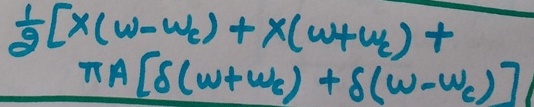 1/2 [X(ω-ωc) + X(ω+ωc) +
πA[δ(ω+ωc) + δ(ω-ωc)]